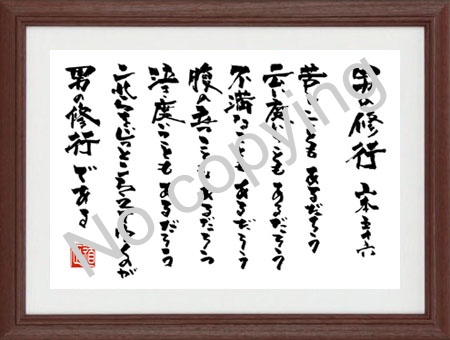 男の修行 山本五十六
苦しいことも あるだろう
云い度いことも あるだろう
不満なことも あるだろう
腹の立つことも あるだろう
泣き度いことも あるだろう
これらをじっとこらえてゆくのが
男の修行である
No copying